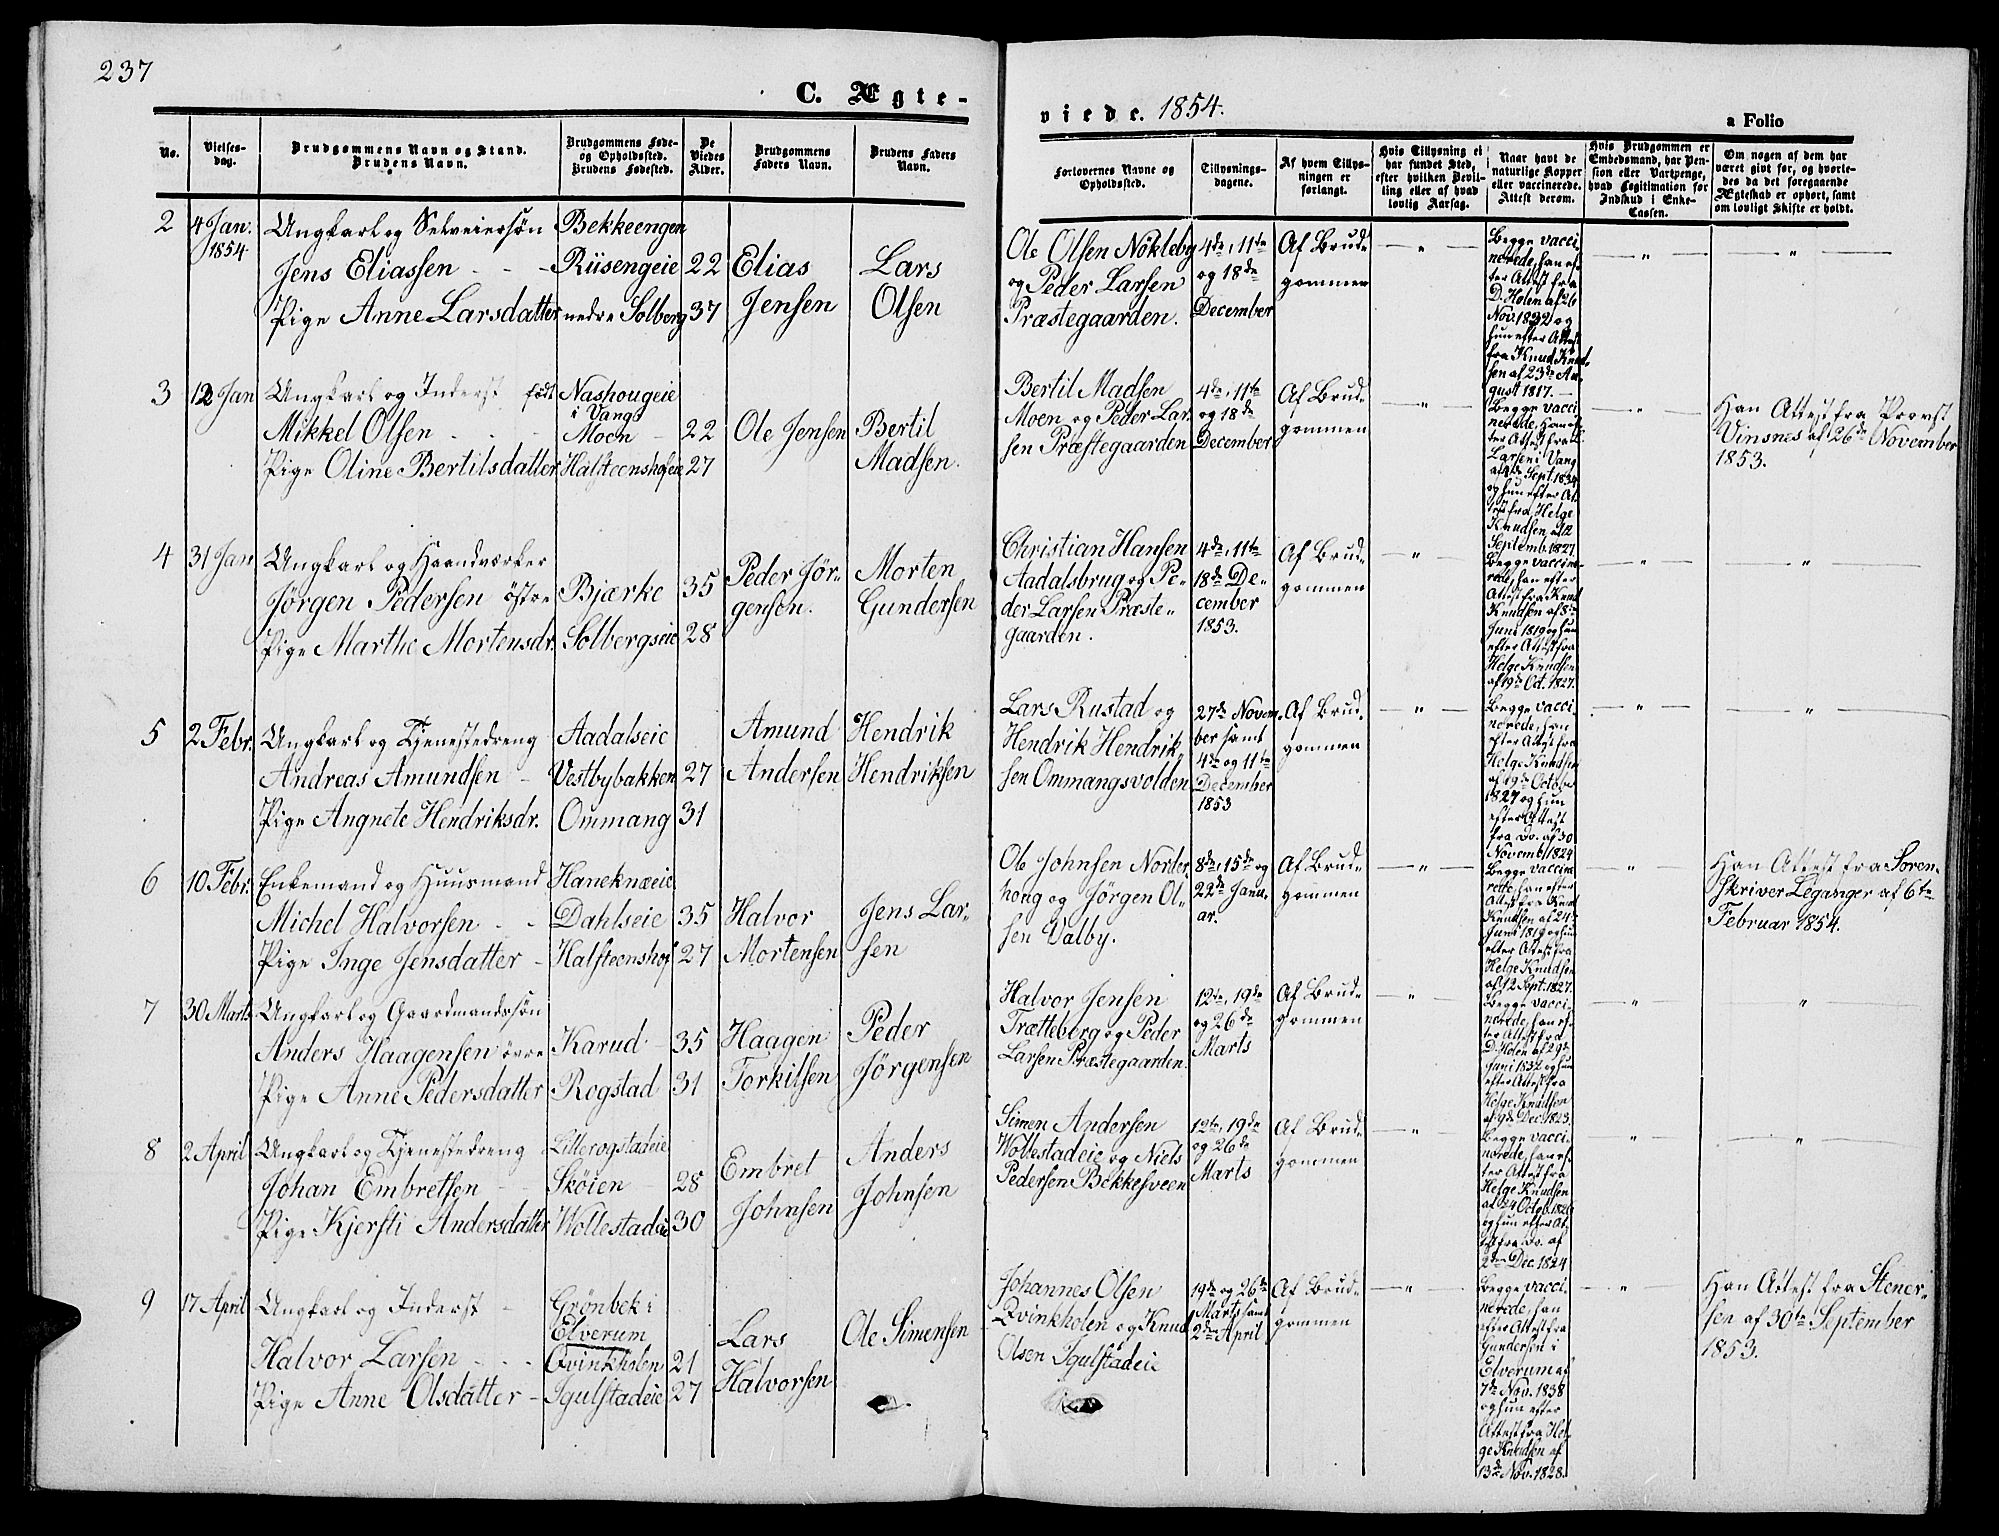 237
C. Ægte-
viede. 1854.
a Folio
No.
Vielses-
dag.
Brudgommens Navn og Stand.
Brudens Navn.
Brudgommens Føde-
og Opholdssted.
Brudens Fødested.
De
Viedes
Alder.
Brudgommens
Faders Navn.
Brudens Faders
Navn.
Forlovernes Navne og
Opholdssted.
Tillysnings-
dagene.
Af hvem Tillys-
ningen er
forlangt.
Hvis Tillysning ei
har fundet Sted,
efter hvilken Bevil-
ling eller af hvad
lovlig Aarsag.
Naar havt de
naturlige Kopper
eller vaccinerede.
Attest derom.
Hvis Brudgommen er
Embedsmand, har Pen-
sion eller Vartpenge,
hvad Legitimation for
Indskud i Enke-
Cassen.
Om nogen af dem har
været givt før, og hvorle-
des da det foregaaende
Ægteskab er ophørt, samt
om lovligt Skifte er holdt.
2
4 Jan.
1854
Ungkarl og Selveiersøn
Jens Eliassen
Pige Anne Larsdatter
Bekkeengen
Riisengeie
nedre Solberg
22
37
Elias
Jensen
Lars
Olsen
Ole Olsen Nökleby
og Peder Larsen
Præstegaarden.
4de, 11te
og 18de
December
Af Brud-
gommen
Begge vacci-
nerede, han ef-
ter Attest fra
D. Holen af 26
Nov. 1832 og
hun efter Attest
fra Knud Knud-
sen af 23de Au-
gust 1817.
3
12 Jan
Ungkarl og Inderst født
Mikkel Olsen
Pige Oline Bertilsdatter
Nashougeie
i Vang
Moen
Halsteenshofeie
22
27
Ole Jensen
Bertil
Madsen.
Bertil Madsen
Moen og Peder Lar-
sen Præstegaarden
4de, 11te
og 18de
December
Af Brud-
gommen
Begge vacci-
nerede, han ef-
ter Attest fra
Larsen i Vang
af 4de Sept. 1834
og hun efter At-
test fra Helge
Knudsen af 12
Septemb. 1827.
Han Attest fra Provst
Vinsnes af 26de November
1853.
4
31 Jan
Ungkarl og Haandværker
Jörgen Pedersen östre
Pige Marthe Mortensdr.
Bjærke
Solbergseie
35
28
Peder Jör-
gensen.
Morten
Gundersen
Christian Hansen
Aadalsbrug og Pe-
der Larsen Præste-
gaarden.
4de, 11te
18de De-
cember
1853.
Af Brud-
gommen
Begge vaccine-
rede, han efter
Attest fra Knud
Knudsen af 8de
Juni 1819 og hun
efter Attest fra
Helge Knudsen
af 19de Oct. 1827.
5
2 Febr.
Ungkarl og Tjenestedreng
Andreas Amundsen
Pige Angnete Hendriksdr.
Aadalseie
Vestbybakken
Ommang
27
31
Amund
Andersen
Hendrik
Hendriksen
Lars Rustad og
Hendrik Hendrik-
sen Ommangsvolden
27de Novem-
ber samt
4de og 11te
December
1853
Af Brud-
gommen
Begge vacci-
nerede, han
efter Attest fra
Helge Knudsen
af 19de Octobr
1827 og hun
efter Attest
fra Do. af 30
Novemb. 1824
6
10 Febr.
Enkemand og Huusmand
Michel Halvorsen
Pige Inge Jensdatter
Haneknæeie
Dahlseie
Halsteenshof
35
27
Halvor
Mortensen
Jens Lar-
sen
Ole Johnsen Norder-
houg og Jörgen Ol-
sen Valby.
8de, 15de og
22de Janu-
ar.
Af Brud-
gommen
Begge vaccine-
rede, han efter
Attest fra Knud
Knudsen af 24de
Juni 1819 og hun
efter Attest fra
Helge Knudsen
af 12 Sept. 1827.
Han Attest fra Soren-
skriver Leganger af 6te
Februar 1854.
7
30 Marts
Ungkarl og Gaardmandssøn
Anders Haagensen övre
Pige Anne Pedersdatter
Karud
Rogstad
35
31
Haagen
Torkilsen
Peder
Jörgensen
Halvor Jensen
Trætteberg og Peder
Larsen Præstegaarden.
12te, 19de
og 26de
Marts
Af Brud-
gommen
Begge vacci-
nerede, han ef-
ter Attest fra
D. Holen af 29de
Juni 1832 og hun
efter Attest fra
Helge Knudsen
af 9de Dec. 1823.
8
2 April
Ungkarl og Tjenestedreng
Johan Embretsen
Pige Kjersti Andersdatter
Lillerogstadeie
Skøien
Wollestadeie
28
30
Embret
Johnsen
Anders
Johnsen
Simen Andersen
Wollestadeie og Niels
Pedersen Bekkesveen
12te, 19de
og 26de
Marts
Af Brud-
gommen
Begge vacci-
nerede, han ef-
ter Attest fra
Helge Knudsen
af 24 Octob. 1826
og hun efter At-
test fra Do. af
2den Dec. 1824
9
17 April
Ungkarl og Inderst
Halvor Larsen
Pige Anne Olsdatter
Grönbek i
Elverum
Qvinkholen
Igulstadeie
21
27
Lars
Halvorsen
Ole Simensen
Johannes Olsen
Qvinkholen og Knud
Olsen Igulstadeie
19de og 26de
Marts samt
2den April
Af Brud-
gommen
Begge vacci-
nerede, han
efter Attest fra
Gundersen i
Elverum af
7de Nov. 1838
og hun efter
Attest fra Hel-
ge Knudsen af
13de Nov. 1828.
Han Attest fra Stener-
sen af 30te September
1853.